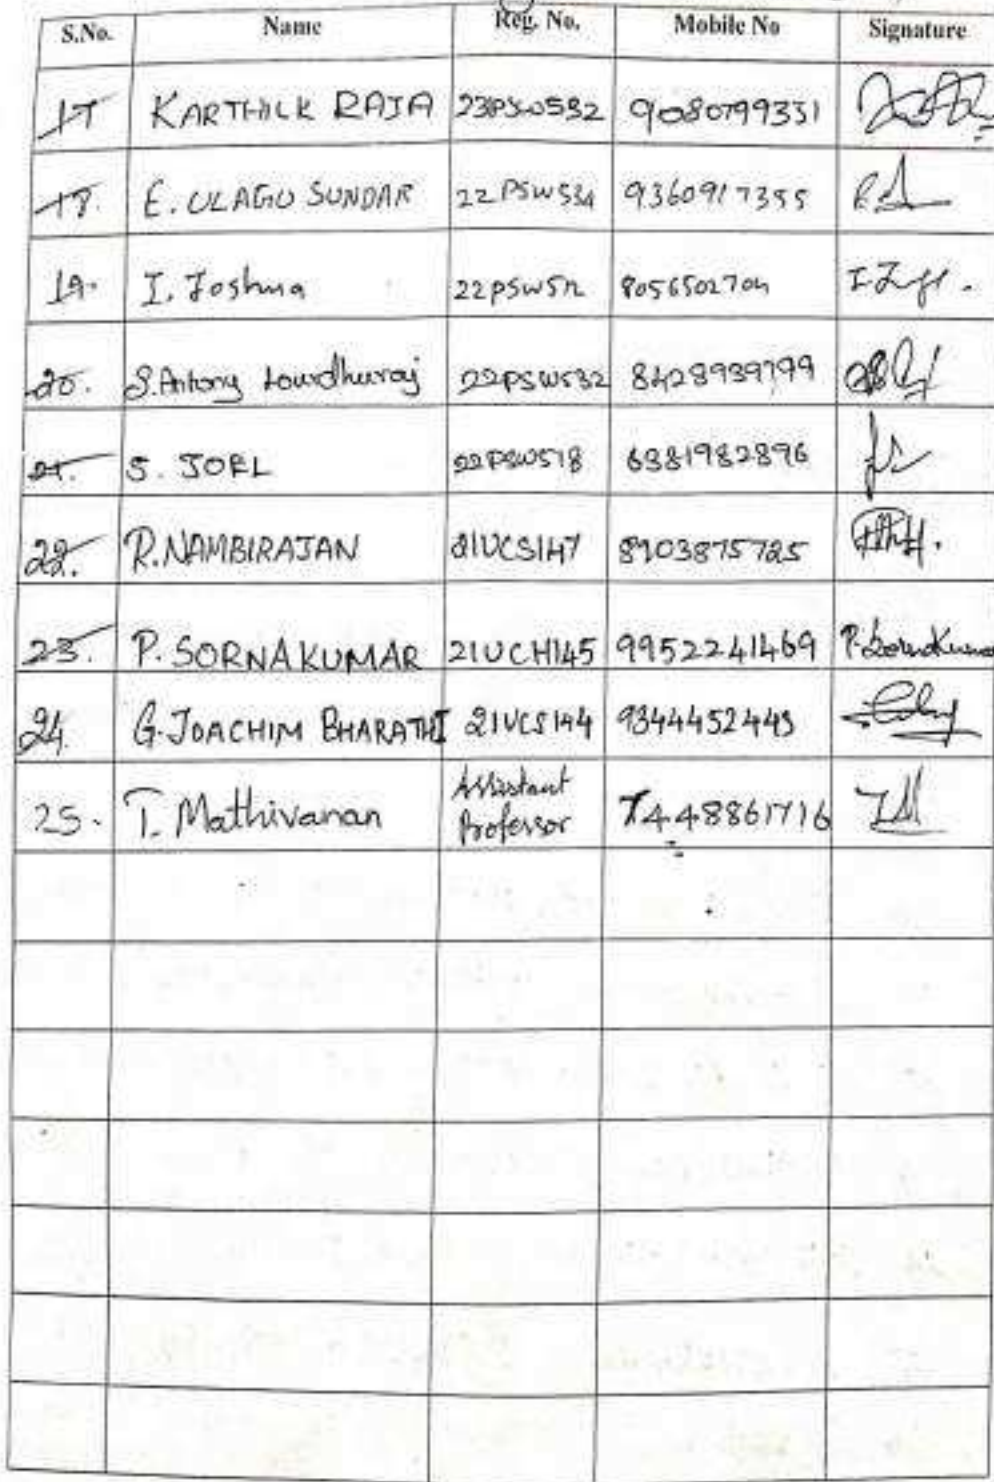 S.No. Name Reg. No. Mobile No Signature
17 KARTHICK RAJA 23PSW532 9080799331
18. E. ULAGU SUNDAR 22PSW534 9360917355
19. I. Joshua 22PSW512 8056502704
20. S. Antony Lourdhuraj 22PSW532 8428939799
21. S. JOEL 22PSW518 6381982896
22. R. NAMBIRAJAN 21UCS147 8903875725
23. P. SORNAKUMAR 21UCH145 9952241469 P. Sornakumar
24. G. JOACHIM BHARATHI 21UCS144 9344452443
25. T. Mathivanan Assistant Professor 7448861716